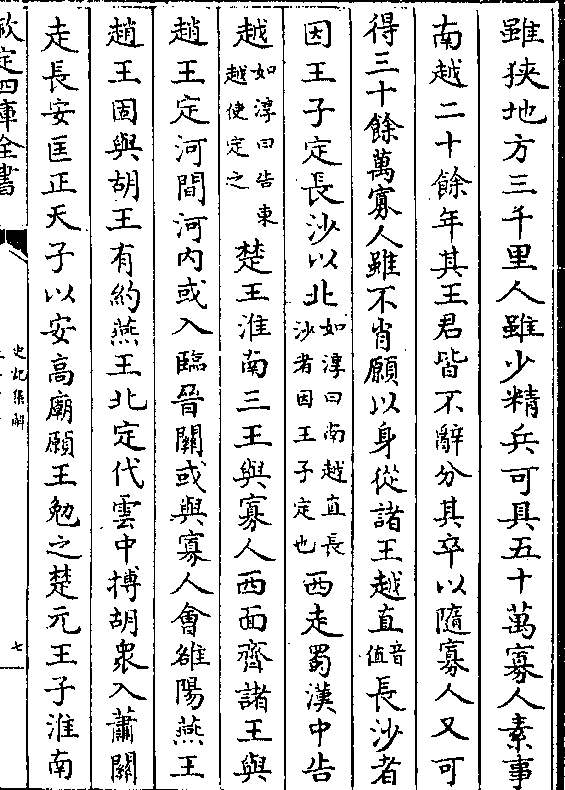 雖狹地方三千里人雖少精兵可具五十萬寡人素事
南越二十餘年其王君皆不辭分其卒以隨寡人又可
得三十餘萬寡人雖不肖願以身從諸王越直音值長沙者
因王子定長沙以北如淳曰南越直長沙者因王子定也西走蜀漢中告
越如淳曰告東越使定之楚王淮南三王與寡人西面齊諸王與
趙王定河間河內或入臨晉關或與寡人會雒陽燕王
趙王固與胡王有約燕王北定代雲中摶胡衆入蕭關
走長安匡正天子以安高廟願王勉之楚元王子淮南
欽定四庫全書
史記集解
七